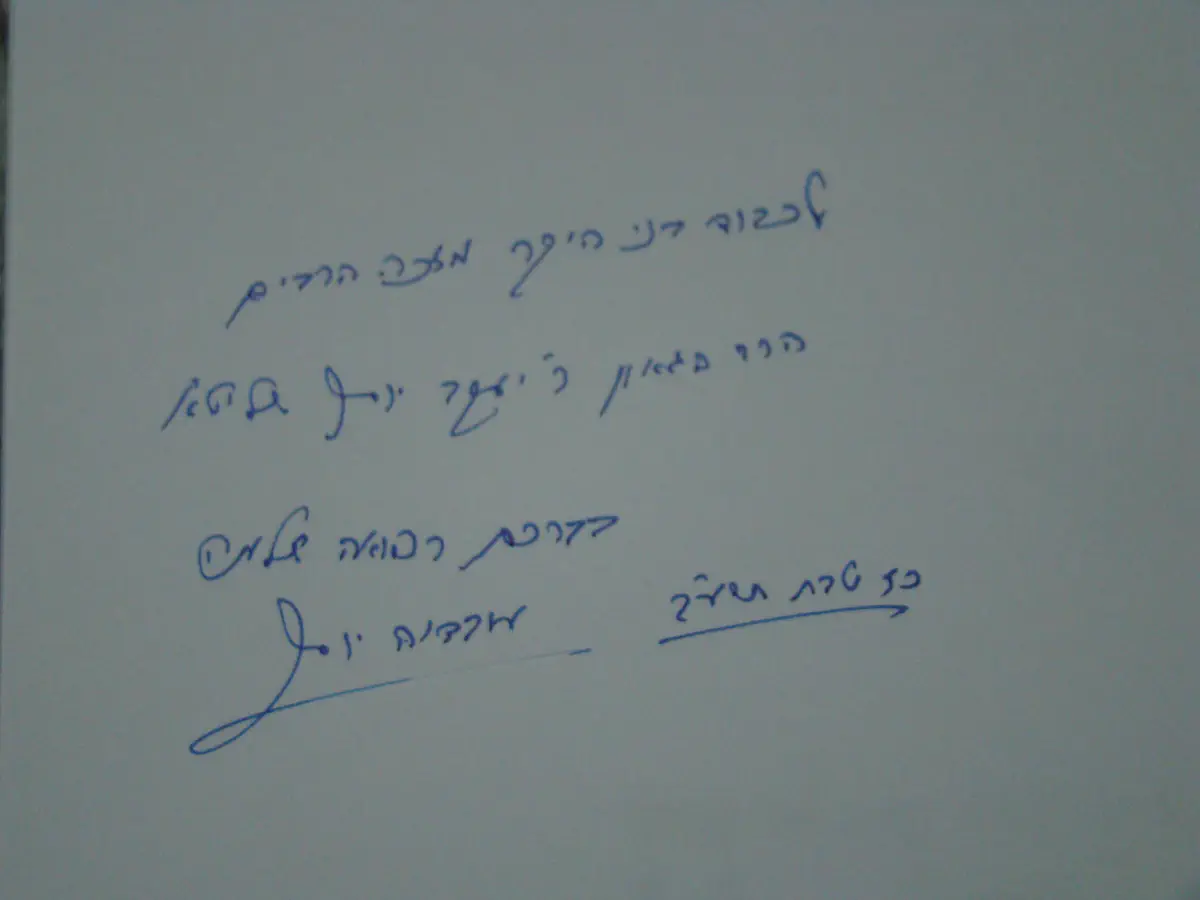 לכבוד בני היקר מזכה הרבים
הרב הגאון ר' יעקב יוסף שליט"א
בברכת רפואה שלמה
כז טבת תשע"ב
עובדיה יוסף